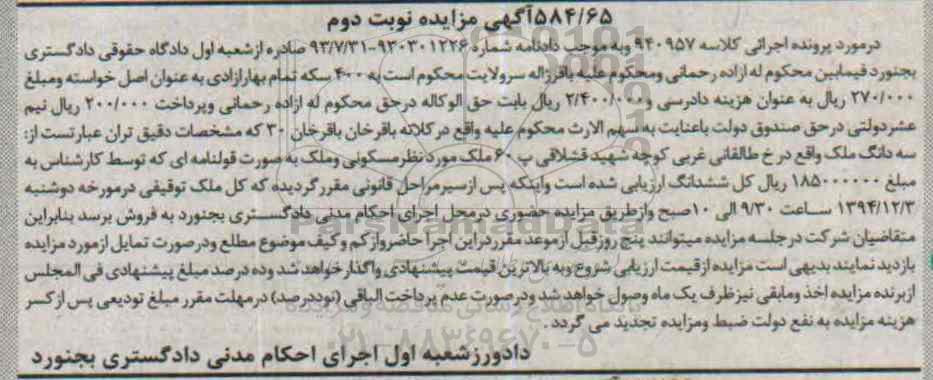 ۵۸۴/۶۵آگهی مزایده نوبت دوم
درمورد پرونده اجرائی کلاسه ۹۴۰۹۵۷ وبه موجب دادنامه شماره ۹۳۰۳۰۱۲۲۶-۹۳/۷/۳۱ صادره ازشعبه اول دادگاه حقوقی دادگستری
بجنورد فیمابین محکوم له ازاده رحمانی ومحکوم علیه باقرزاله سرولایت محکوم است به ۴۰۰ سکه تمام بهارازادی به عنوان اصل خواسته ومبلغ
۲۷۰/۰۰۰ ریال به عنوان هزینه دادرسی و۲/۴۰۰/۰۰۰ ریال بابت حق الوکاله درحق محکوم له ازاده رحمانی وپرداخت ۲۰۰/۰۰۰ ریال نیم
عشردولتی درحق صندوق دولت باعنایت به سهم الارث محکوم علیه واقع درکلاته باقرخان باقرخان ۳۰ که مشخصات دقیق تران عبارتست از:
سه دانگ ملک واقع در خ طالقانی غربی کوچه شهید قشلاقی پ ۶۰ ملک مورد نظرمسکونی وملک به صورت قولنامه ای که توسط کارشناس به
مبلغ ۱۸۵۰۰۰۰۰۰۰ ریال کل ششدانگ ارزیابی شده است واینکه پس ازسیرمراحل قانونی مقررگردیده که کل ملک توقیفی درمورخه دوشنبه
۱۳۹۴/۱۲/۳ ساعت ۹/۳۰ الی ۱۰صبح وازطریق مزایده حضوری درمحل اجرای احکام مدنی دادگستری بجنورد به فروش برسد بنابراین
متقاضیان شرکت درجلسه مزایده میتوانند پنج روزقبل ازموعد مقرردراین اجرا حاضروازکم وکیف موضوع مطلع ودرصورت تمایل ازمورد مزایده
بازدید نمایند بدیهی است مزایده ازقیمت ارزیابی شروع وبه بالاترین قیمت پیشنهادی واگذارخواهد شد وده درصد مبلغ پیشنهادی فی المجلس
ازبرنده مزایده اخذ ومابقی نیزظرف یک ماه وصول خواهد شد ودرصورت عدم پرداخت الباقی (نوددرصد) درمهلت مقرر مبلغ تودیعی پس ازکسر
هزینه مزایده به نفع دولت ضبط ومزایده تجدید می گردد .
دادورزشعبه اول اجرای احکام مدنی دادگستری بجنورد
ParsNamadData
۰۲۱-۸۸۳۴۹۶۷۰-۵